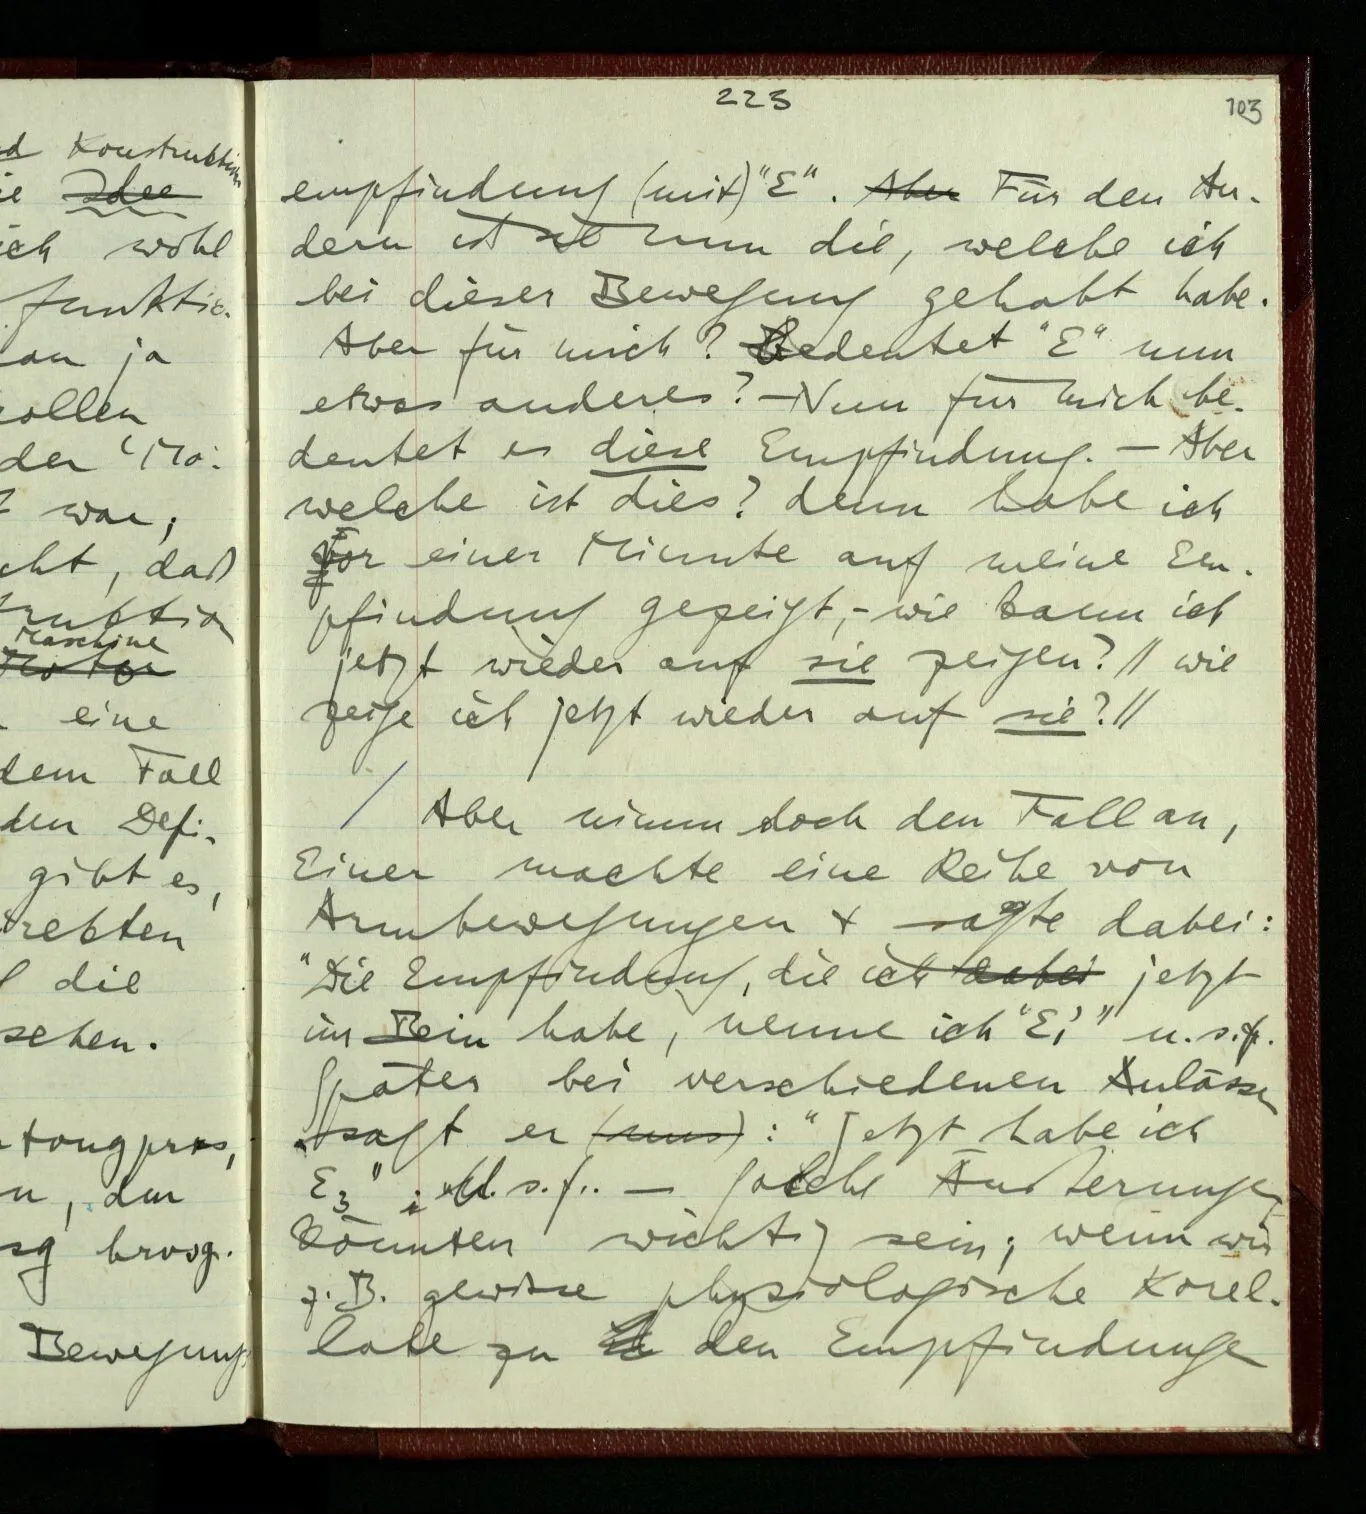 223
103
d Konstruktion
ie Idee
ich wohl
funktio-
an ja
sollen
der 'Mo-
war;
cht, daß
struktion
Maschine
Motor
eine
dem Fall
den Defi-
gibt es,
direkten
die
sehen.
n, dur
brvsg.
Bewegungs
empfindung (mit) "E". Aber Für den An-
dern ist es nun die, welche ich
bei dieser Bewegung gehabt habe.
Aber für mich? Bedeutet "E" nun
etwas anderes? – Nun für mich be-
deutet es diese Empfindung. – Aber
welche ist dies? denn habe ich
vor einer Minute auf meine Em-
pfindung gezeigt, – wie kann ich
jetzt wieder auf sie zeigen? // wie
zeige ich jetzt wieder auf sie? //
/ Aber nimm doch den Fall an,
Einer machte eine Reihe von
Armbewegungen + sagte dabei:
"Die Empfindung, die ich dabei jetzt
im Bein habe, nenne ich 'E₁'" u.s.f.
Später bei verschiedenen Anlässen
sagt er (nun): "Jetzt habe ich
E₃" u.s.f.. – Solche Äußerungen
könnten wichtig sein; wenn wir
z.B. gewisse physiologische Korel-
late zu den Empfindungen